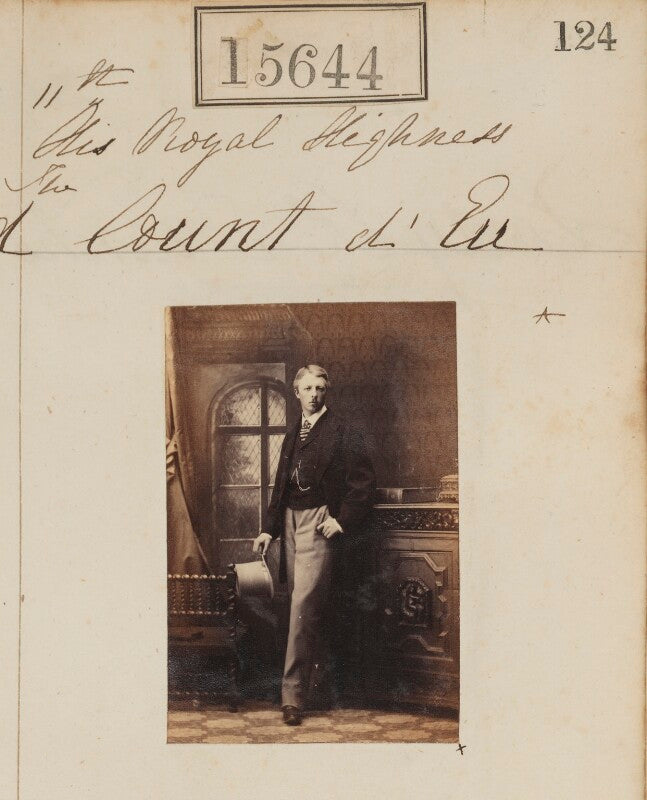 15644
124
11th
His Royal Highness
The
Count d'Eu